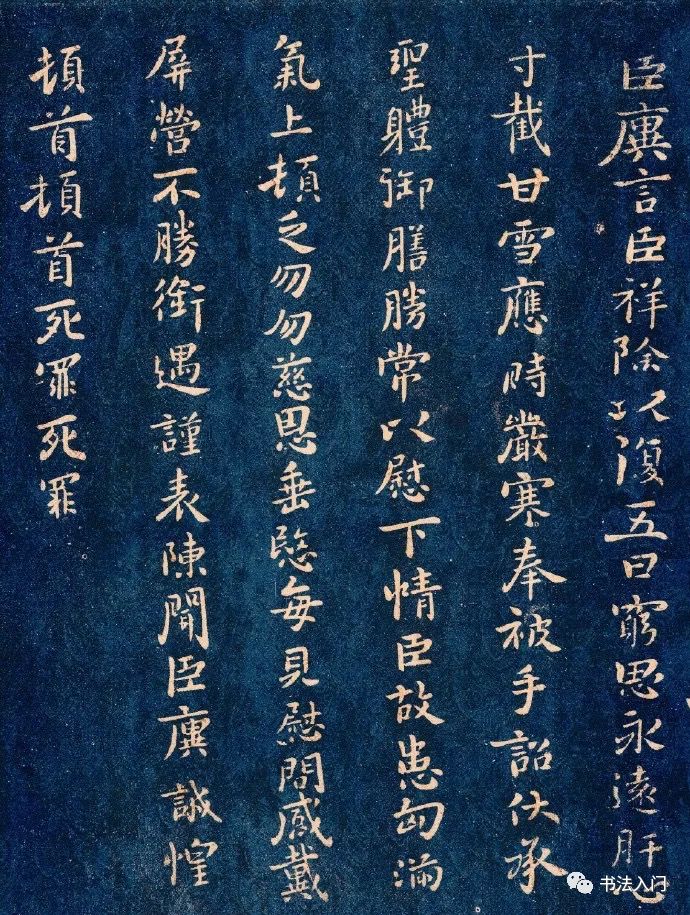 臣廙言臣祥除以復五日窮思永遠肝心
寸截甘雪應時嚴寒奉被手詔伏承
聖體御膳勝常以慰下情臣故患匈滿
氣上頓乏勿勿慈恩垂愍每見慰問感戴
屏營不勝銜遇謹表陳聞臣廙誠惶
頓首頓首死罪死罪
书法入门